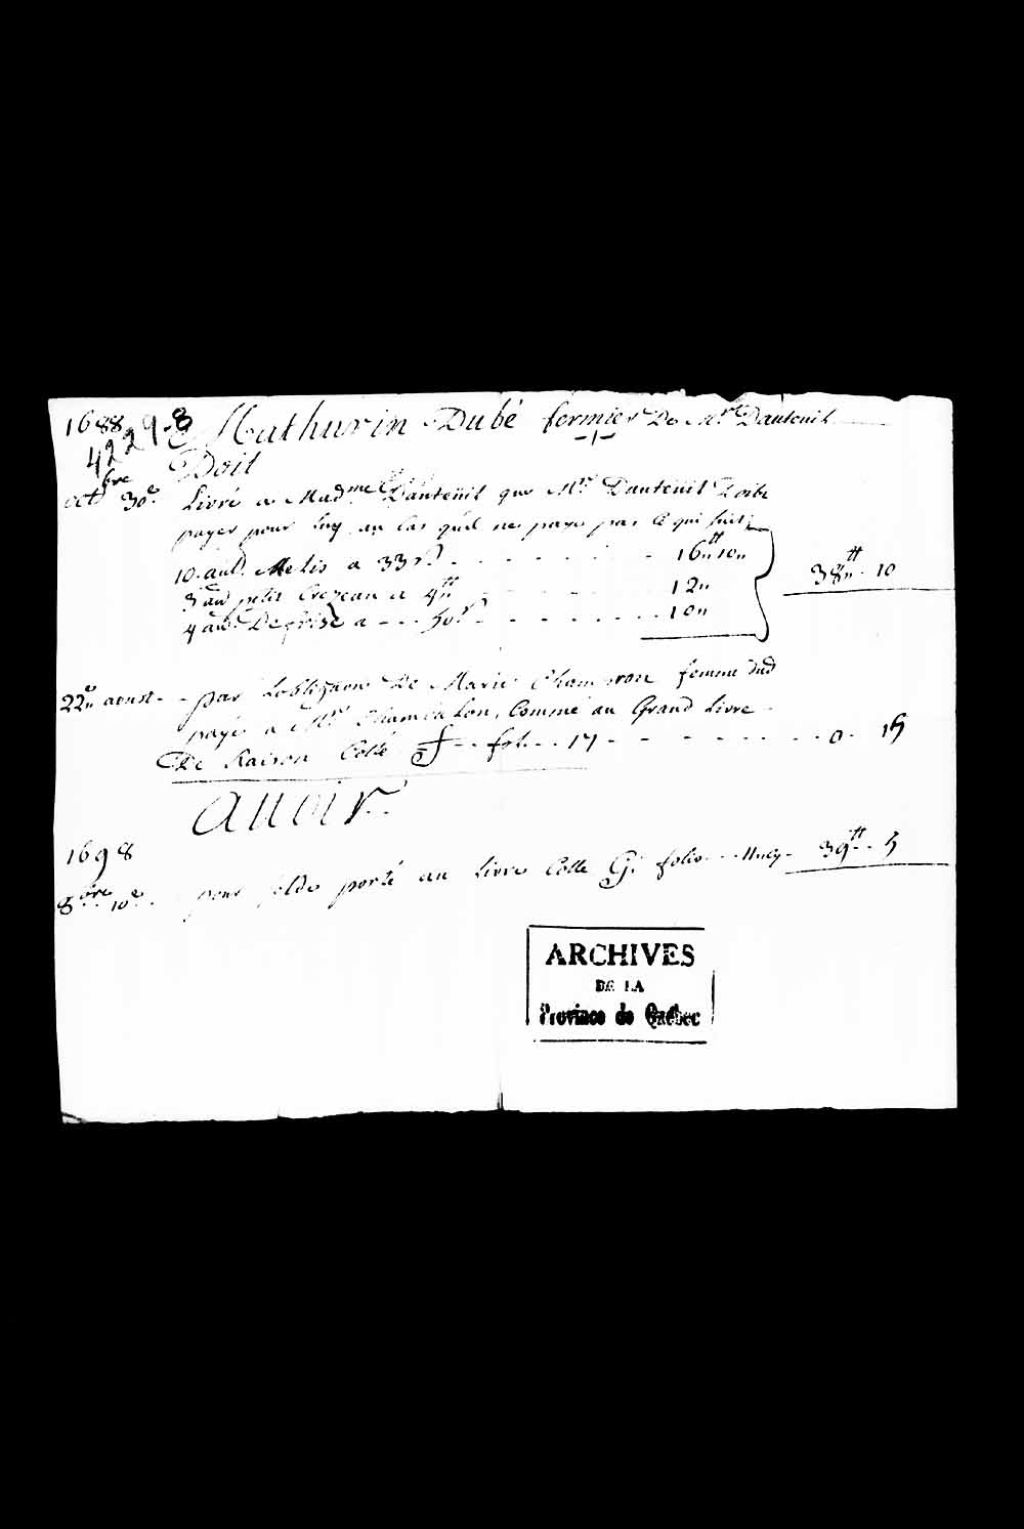 1688
4229-8
Mathurin Dubé fermier De Mr Dauteuil
Doit
octobre 30e Livré a Madme Dauteuil que Mr Dauteuil Doibt
payer pour luy au Cas quil ne paye pas Ce qui suit
10 aul. Melis a 33s - - - - - - 16₶ 10s
3 au petit Crezeau a 4₶ - - - - - - 12₶ 38₶ - 10
4 aul. De frize a - - - 50s - - - - - - - 10₶
22e aoust - - par Lobligaon De Marie Champron femme dud
payé a Mr Chamballon, Comme au Grand Livre
De Raison Cotté F - - fol. - - 17 - - - - - - - - 0 - 15
auoir
1698
8bre 10e - pour solde porté au Livre Cotté G. folio - - - 39₶ - 5
ARCHIVES
DE LA
Province de Québec